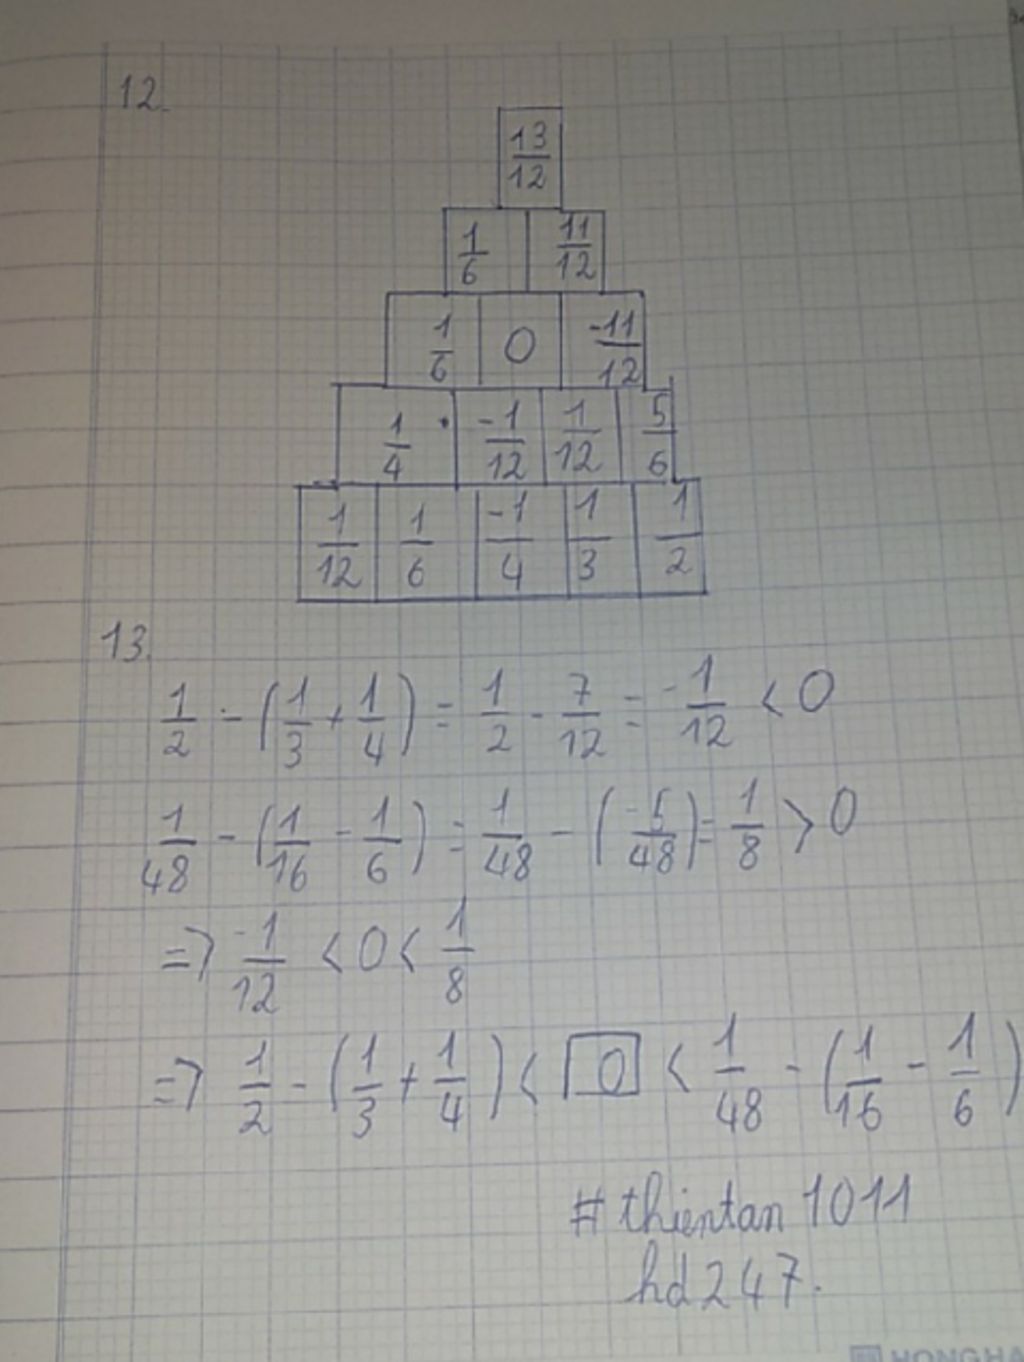 12.
13/12
1/6 11/12
1/6 0 -11/12
1/4 -1/12 1/12 5/6
1/12 1/6 -1/4 1/3 1/2
13.
1/2 - (1/3 + 1/4) = 1/2 - 7/12 = -1/12 < 0
1/48 - (1/16 - 1/6) = 1/48 - (-5/48) = 1/8 > 0
=> -1/12 < 0 < 1/8
=> 1/2 - (1/3 + 1/4) < 0 < 1/48 - (1/16 - 1/6)
# thientan 1011
hd 247.